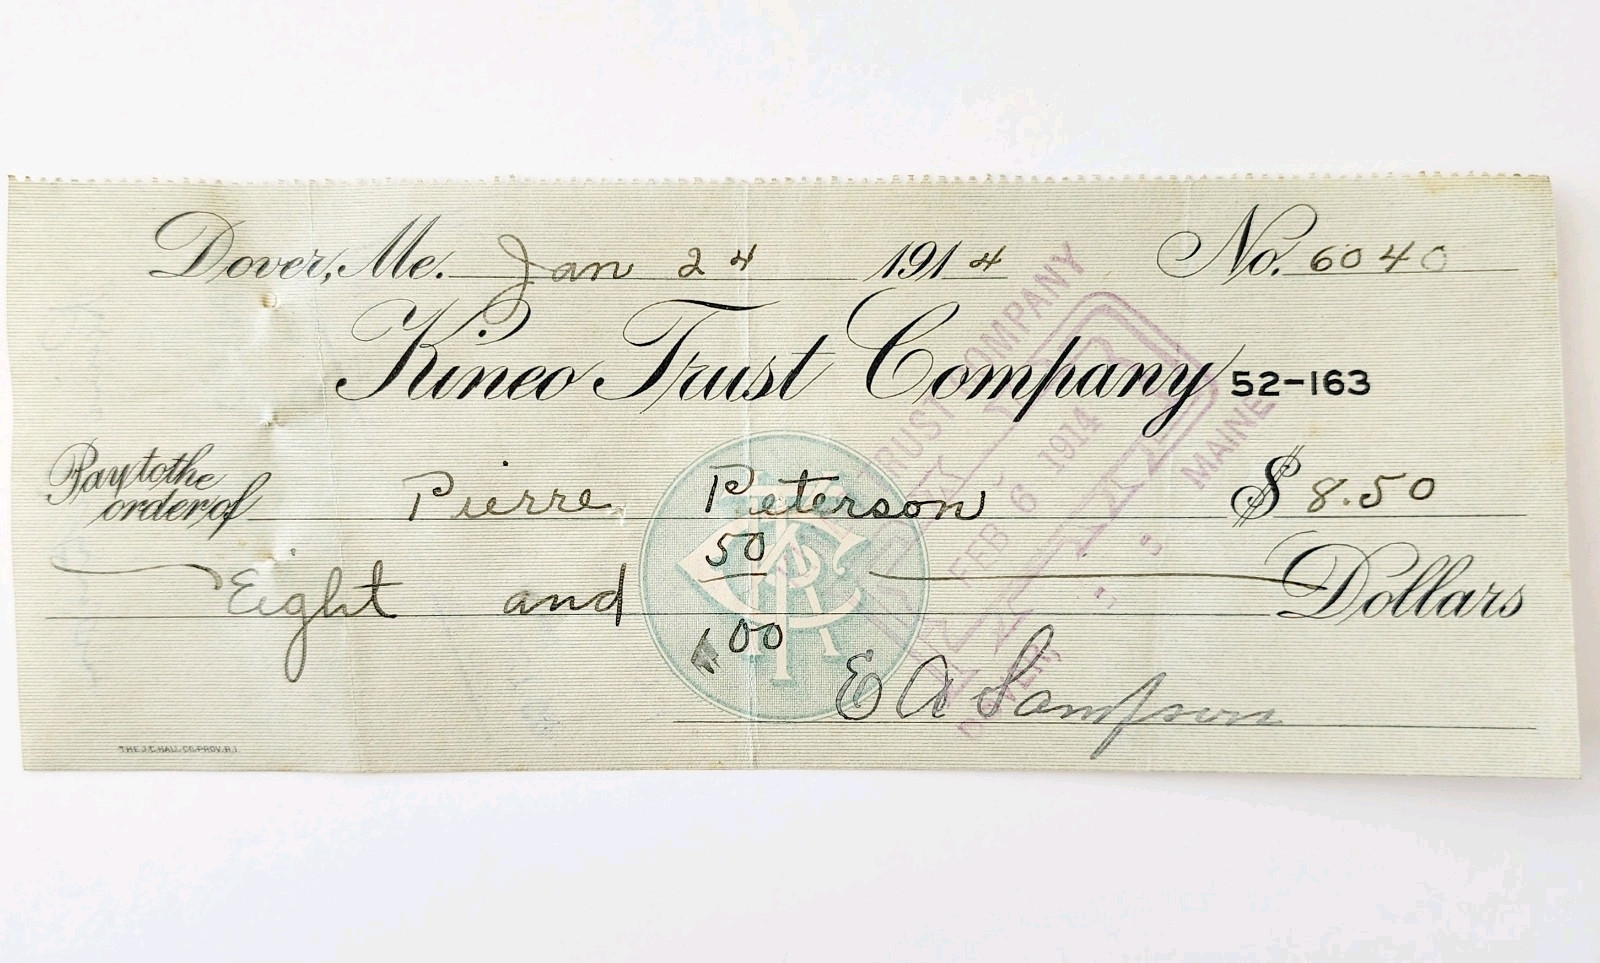 Dover, Me. Jan 24 1914 No. 6040
Kineo Trust Company 52-163
Pay to the
order of Pierre Peterson $ 8.50
Eight and 50/100 Dollars
E A Sampson
TRUST COMPANY
FEB 6 1914
DOVER, MAINE
THE J.C. HALL CO. PROV. R.I.